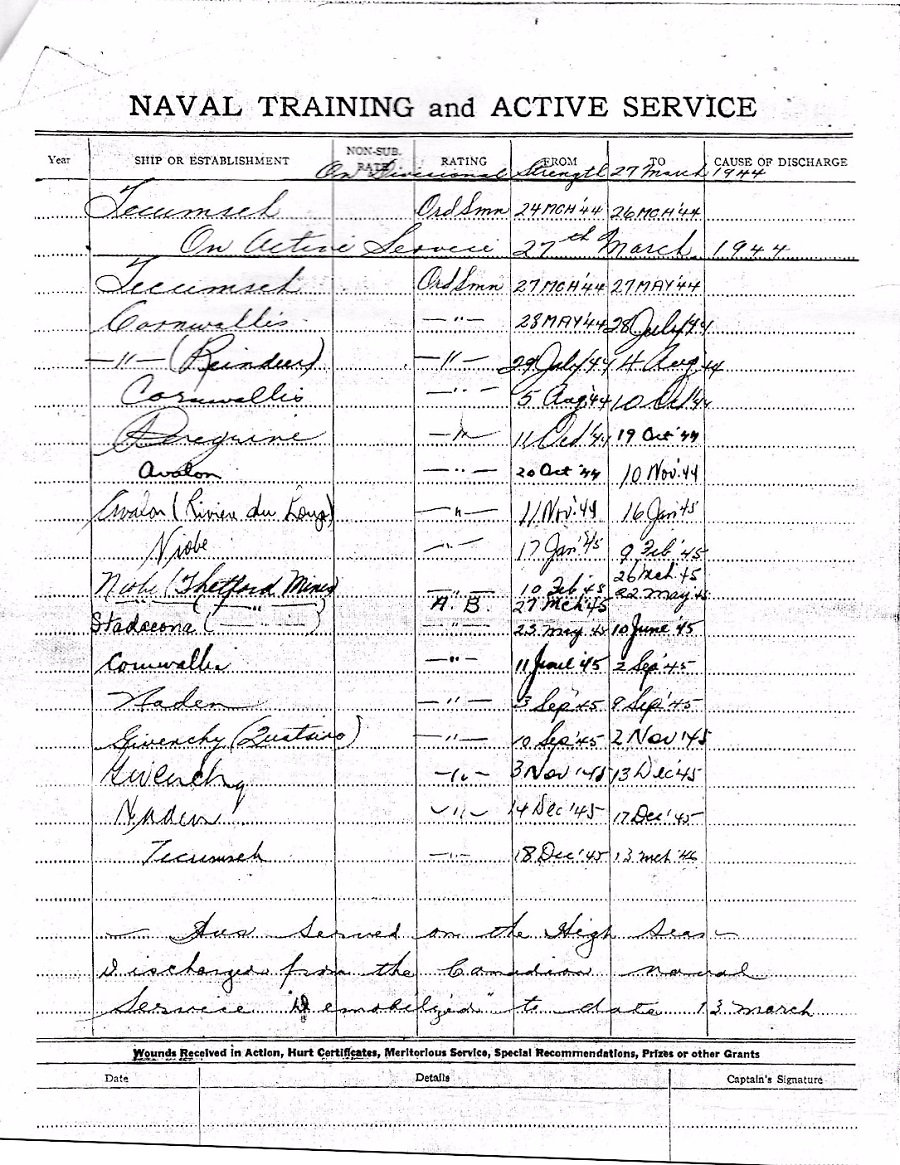 NAVAL TRAINING and ACTIVE SERVICE
Year SHIP OR ESTABLISHMENT NON-SUB. RATE RATING FROM TO CAUSE OF DISCHARGE
On Divisional Strength 27 March 1944
Tecumseh Ord Smn 24 MCH '44 26 MCH '44
On Active Service 27th March 1944
Tecumseh Ord Smn 27 MCH '44 27 MAY '44
Cornwallis —"— 28 MAY '44 28 July/44
—"— (Reindeer) —"— 29 July/44 4 Aug 44
Cornwallis —"— 5 Aug '44 10 Oct/44
Peregrine —"— 11 Oct '44 19 Oct '44
Avalon —"— 20 Oct '44 10 Nov '44
Avalon (Riviere du Loup) —"— 11 Nov '44 16 Jan '45
Niobe —"— 17 Jan '45 9 Feb '45
Niobe (Thetford Mines) —"— 10 Feb '45 26 Mch '45
—"— A. B. 27 Mch '45 22 May '45
Stadacona ( —"— ) —"— 23 May 45 10 June '45
Cornwallis —"— 11 June '45 2 Sep '45
Naden —"— 3 Sep '45 9 Sep '45
Givenchy (Quatsino) —"— 10 Sep '45 2 Nov '45
Givenchy —"— 3 Nov '45 13 Dec '45
Naden —"— 14 Dec '45 17 Dec '45
Tecumseh —"— 18 Dec '45 13 Mch '46
— Has Served on the High Seas —
Discharged from the Canadian naval
Service "Demobilized" to date 13 march
Wounds Received in Action, Hurt Certificates, Meritorious Service, Special Recommendations, Prizes or other Grants
Date Details Captain's Signature